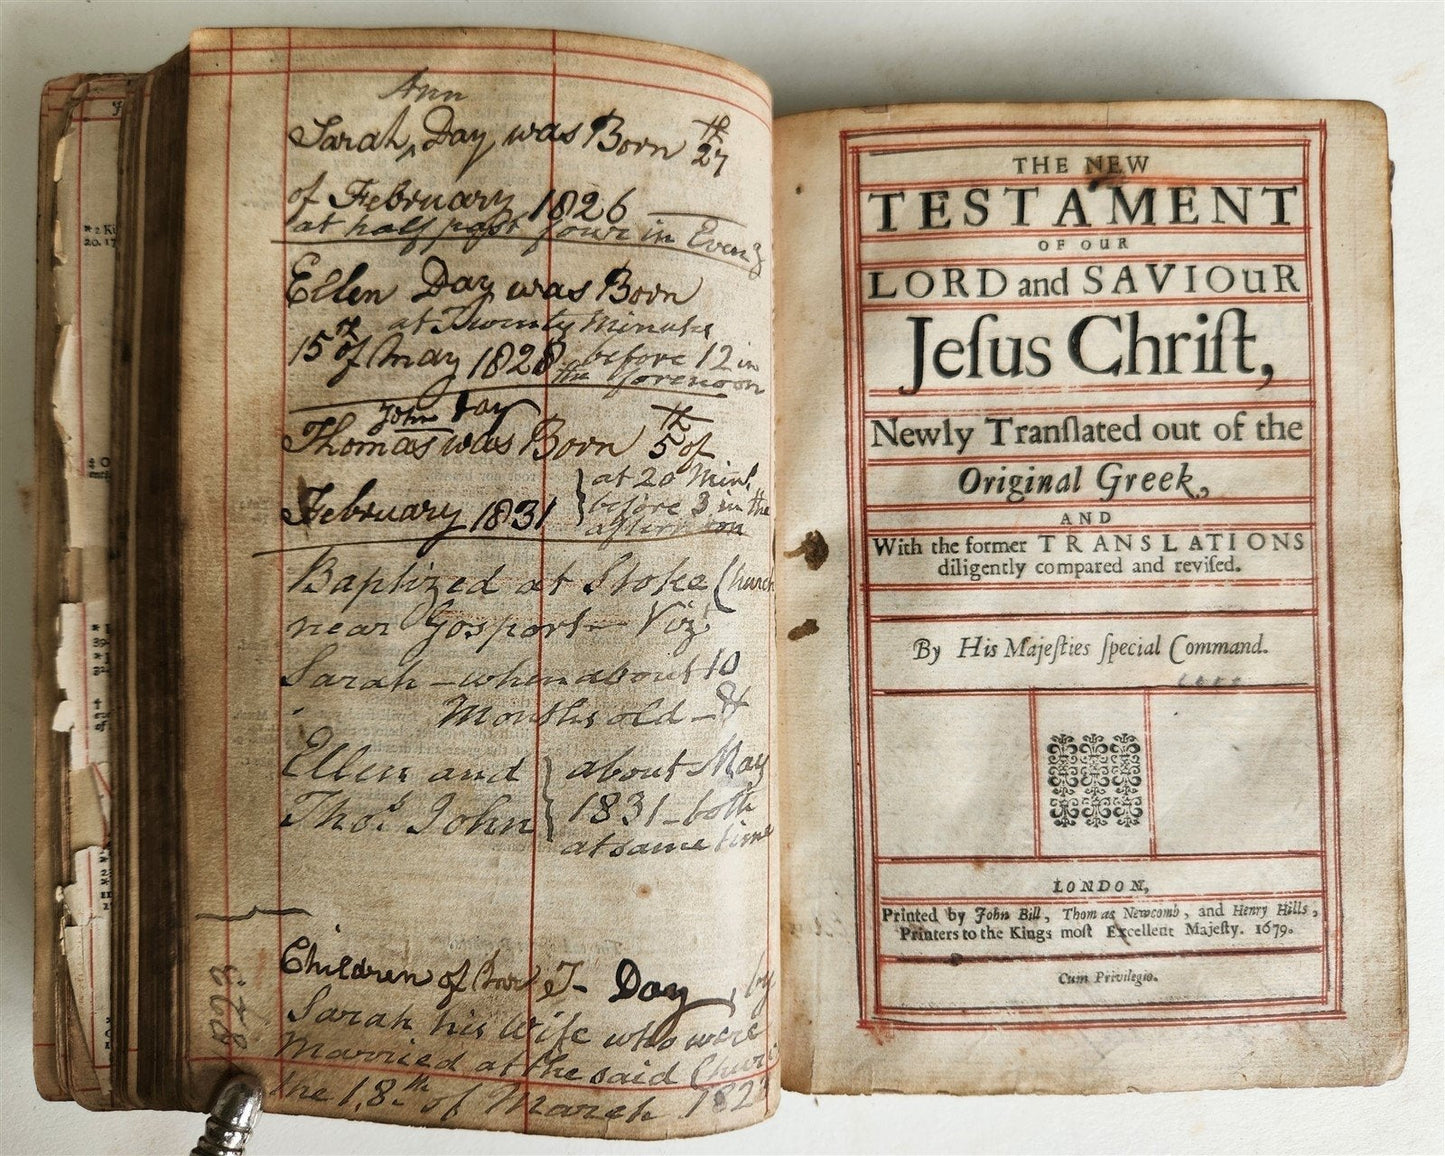 Ann
Sarah, Day was Born 27th
of February 1826
at half past four in Eveng
Ellen Day was Born
at Twenty Minutes
15th of May 1828 before 12 in
the forenoon
John Day
Thomas was Born 5th of
February 1831 } at 20 Mins.
before 3 in the
afternoon
Baptized at Stoke Church
near Gosport – Viz.
Sarah – when about 10
Months old – &
Ellen and } about May
Thos. John } 1831 – both
at same time
Children of T– Day, by
Sarah his Wife who were
Married at the said Church
the 18th of March 1823
1823
* 2 Ki
20. 17
THE NEW
TESTAMENT
OF OUR
LORD and SAVIOUR
Jeſus Chriſt,
Newly Tranſlated out of the
Original Greek,
AND
With the former TRANSLATIONS
diligently compared and reviſed.
By His Majeſties ſpecial Command.
LONDON,
Printed by John Bill, Thomas Newcomb, and Henry Hills,
Printers to the Kings moſt Excellent Majeſty. 1679.
Cum Privilegio.